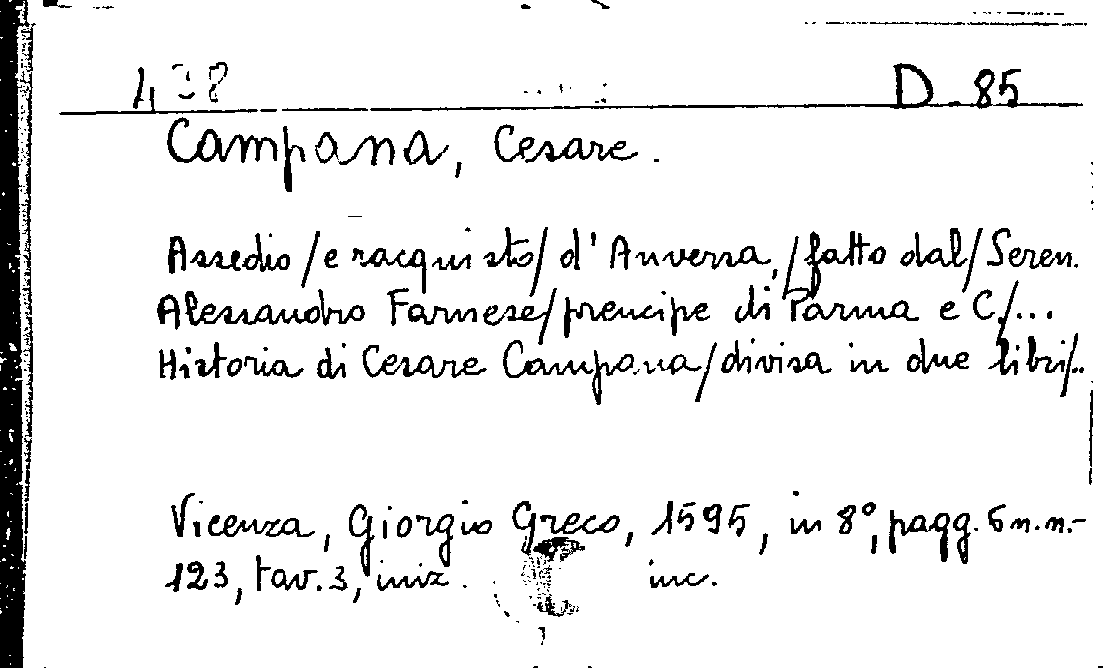 438 D-85
Campana, Cesare.
Assedio/e racquisto/d'Anversa,/fatto dal/Seren.
Alessandro Farnese/prencipe di Parma e C/...
Historia di Cesare Campana/divisa in due libri/..
Vicenza, Giorgio Greco, 1595, in 8°, pagg. 6 n.n.-
123, tav. 3, iniz. inc.